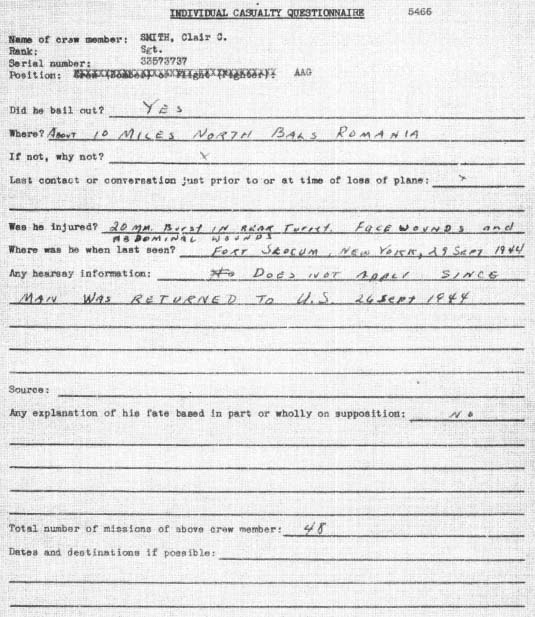 INDIVIDUAL CASUALTY QUESTIONNAIRE 5466
Name of crew member: SMITH, Clair C.
Rank: Sgt.
Serial number: 33573737
Position: Crew (Bomber) or Flight (Fighter): AAG
Did he bail out? YES
Where? ABOUT 10 MILES NORTH BALS ROMANIA
If not, why not? X
Last contact or conversation just prior to or at time of loss of plane: X
Was he injured? 20 MM. Burst IN REAR Turret. FACE WOUNDS and
ABDOMINAL WOUNDS
Where was he when last seen? FORT SLOCUM, NEW YORK, 29 SEPT 1944
Any hearsay information: No DOES NOT APPLY SINCE
MAN WAS RETURNED TO U.S. 26 SEPT 1944
Source:
Any explanation of his fate based in part or wholly on supposition: NO
Total number of missions of above crew member: 48
Dates and destinations if possible: